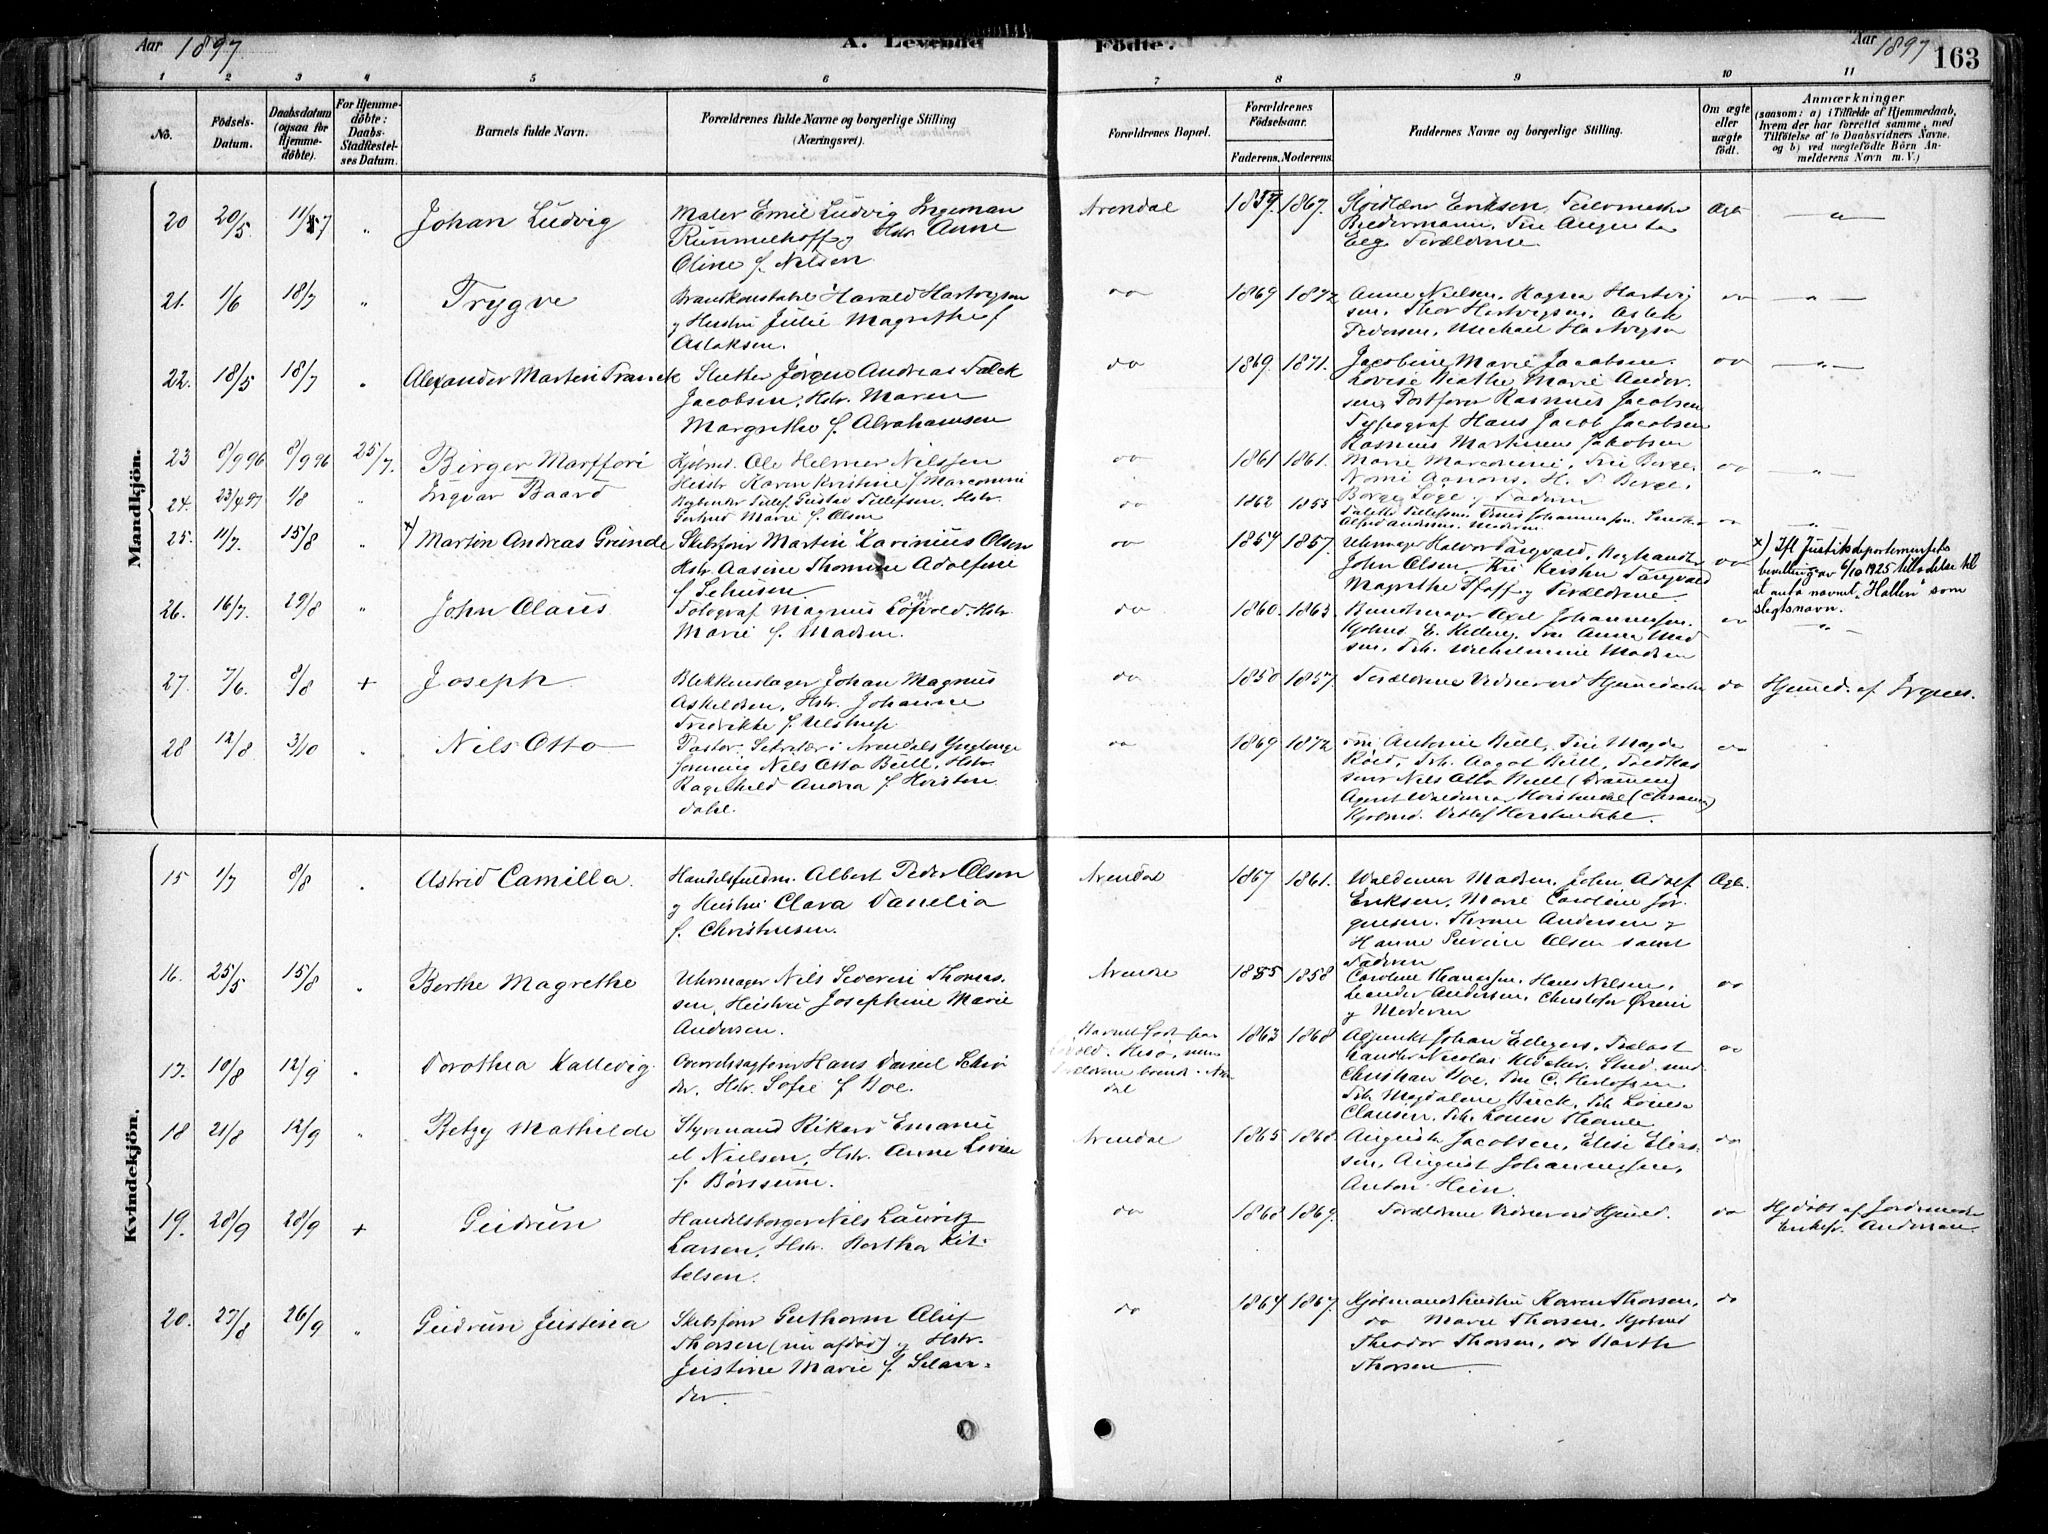 Aar 1897
A. Levende
Fødte.
Aar 1897
163
1 2 3 4 5 6 7 8 9 10 11
No.
Fødsels-Datum.
Daabsdatum (ogsaa for Hjemmedøbte).
For Hjemmedøbte: Daabs-Stadfæstelses Datum.
Barnets fulde Navn.
Forældrenes fulde Navne og borgerlige Stilling
(Næringsvei).
Forældrenes Bopæl.
Forældrenes Fødselsaar.
Faderens. Moderens.
Faddernes Navne og borgerlige Stilling.
Om ægte eller uægte født.
Anmærkninger
(saasom: a) i Tilfælde af Hjemmedaab,
hvem der har forrettet samme, med
Tilføielse af to Daabsvidners Navne,
og b) ved uægtefødte Børn Anmelderens Navn m. V.)
Mandkjøn.
20 20/5 11/7 " Johan Ludvig
Maler Emil Ludvig Ingeman
Rummelhoff og Hstr. Anne
Oline f. Nilsen.
Arendal 1859. 1867.
Eriksen,
Biedermann, Frk Augusta
Forældrene
Ægte
21. 1/6 18/7 " Trygve
Brandkonstabel Harald Hartvigsen
og Hustru Julie Magrethe f
Aslaksen.
do 1869 1872
Anne Nielsen, Ragna Hartvig
sen, Thor Hartvigsen, Aslak
Pedersen, Michael Hartvigsen
do
22. 18/5 18/7 " Alexander Martin Franck
Jørgen Andreas Falck
Jacobsen, Hstr. Maren
Margrethe f. Abrahamsen
do 1869. 1871.
Jacobine Marie Jacobsen.
Lovise Marie Ander.
sen, Rasmus Jacobsen
Typograf Hans Jacob Jacobsen
Rasmus Martinius Jakobsen
do
23 8/9 96 8/9 96 25/7. Birger
Kjøbmd. Ole Helmer Nilssen
Hustr. Karen Kristine f. Marconini
do 1861 1861.
H. T. Berge,
do
24. 23/4 97 1/8 Ingvar Baard
Gustav Tellefsen, Hstr.
Gertrud Marie f. Olsen
do 1862 1855
do
25. 11/7. 15/8 " x) Martin Andreas Grunde
Skibsfører Martin Karinius Olsen
Hstr. Aasine Thomine Adolfine
f Schusen
do 1854 1857.
Uhrmager Halvor Torgvald, Boghandler
John Olsen, Fru Kirstine Torgvald
Magrethe Pfaff og Forældrene.
do
x) Ifl Justisdepartementets
bevilling av 6/10 1925 tilladelse til
at anta navnet "Hallen" som
slegtsnavn.
26. 16/7. 29/8 " John Claus
Fotograf Magnus Løvold Hstr
Marie f. Madsen.
do 1860. 1863.
Buntmager Axel Johannessen.
Frk. Wilhelmine Madsen
27. 7/6. 8/8 + Joseph.
Blikkenslager Johan Magnus
Askildsen, Hstr. Johanne
Fredrikke f. Ulstrup
do 1850 1857.
Forældrene Vidner ved Hjemmedaaben
do
Hjemmed. af
28 12/8 3/10 " Nils Otto
Pastor, Sekretær i Arendals Ynglinge
forening Nils Otto Bull, Hstr.
Ragnhild Andrea f Horsten
dahl.
do 1869 1872
Fru Antonie Bull, Fru Magda
Frk. Aagot Bull, Toldkas
serer Nils Otto Bull (Drammen)
Agent Waldemar Horstendal (Chrania)
Kjøbmd. Ditlef Horstendal.
do
Kvindekjøn.
15 1/7 8/8 " Astrid Camilla.
Handelsfuldm. Albert Peder Olsen
og Hustru Clara Danelia
f. Christensen.
Arendal 1867 1861.
Waldemar Madsen, John Adolf
Eriksen, Marie Caroline Jør
gensen, Thomine Andersen og
Hanne Severine Olsen samt
Faderen
Ægte.
16. 25/5 15/8 " Berthe Magrethe
Uhrmager Nils Severin Thomas
sen, Hustru Josephine Marie
Andersen.
Arendal 1855 1858
Caroline Hansen, Hans Nilsen,
Leander Andersen, Christofer
og Moderen
do
17. 10/8 12/9 " Dorothea Kallevig
Overretssagfører Hans Daniel Schrø
der, Hstr. Sofie f Boe.
Barnet født paa
Hisø, men
Forældrene boende i Aren
dal
1863 1868
Adjunkt Johan Ellegers, Trælast
handler Nicolai Kløcker, Stud. med
Christian Boe, Fru C. Herlofsen
Frk Magdalene Buck, Frk Lovise
Clausen, Frk. Louise
do
18 21/8 12/9 " Betzy Mathilde
Styrmand Rikard Emanu
el Nielsen, Hstr. Anne Lovise
f. Børresen.
Arendal 1865 1868.
Augusta Jacobsen, Elise Elias
sen, August Johannessen,
Anton Hein.
do
19. 28/9 28/9 + Gudrun
Handelsborger Nils Lauritz
Larsen, Hstr. Bertha Kit
telsen.
do 1868 1869.
Forældrene Vidner ved Hjmd.
do
Hjdøbt af Jordmoder
Enkefr. Andersen.
20. 27/8 26/9 " Gudrun Justina
Skibsfører Guthorm Alief
Thorsen (nu afdød) og Hstr.
Justine Marie f. Selan
der.
do 1864 1867.
Kjøbmandshustru Karen Thorsen,
do Marie Thorsen, Kjøbmd
Theodor Thorsen, do Barth
Thorsen
do